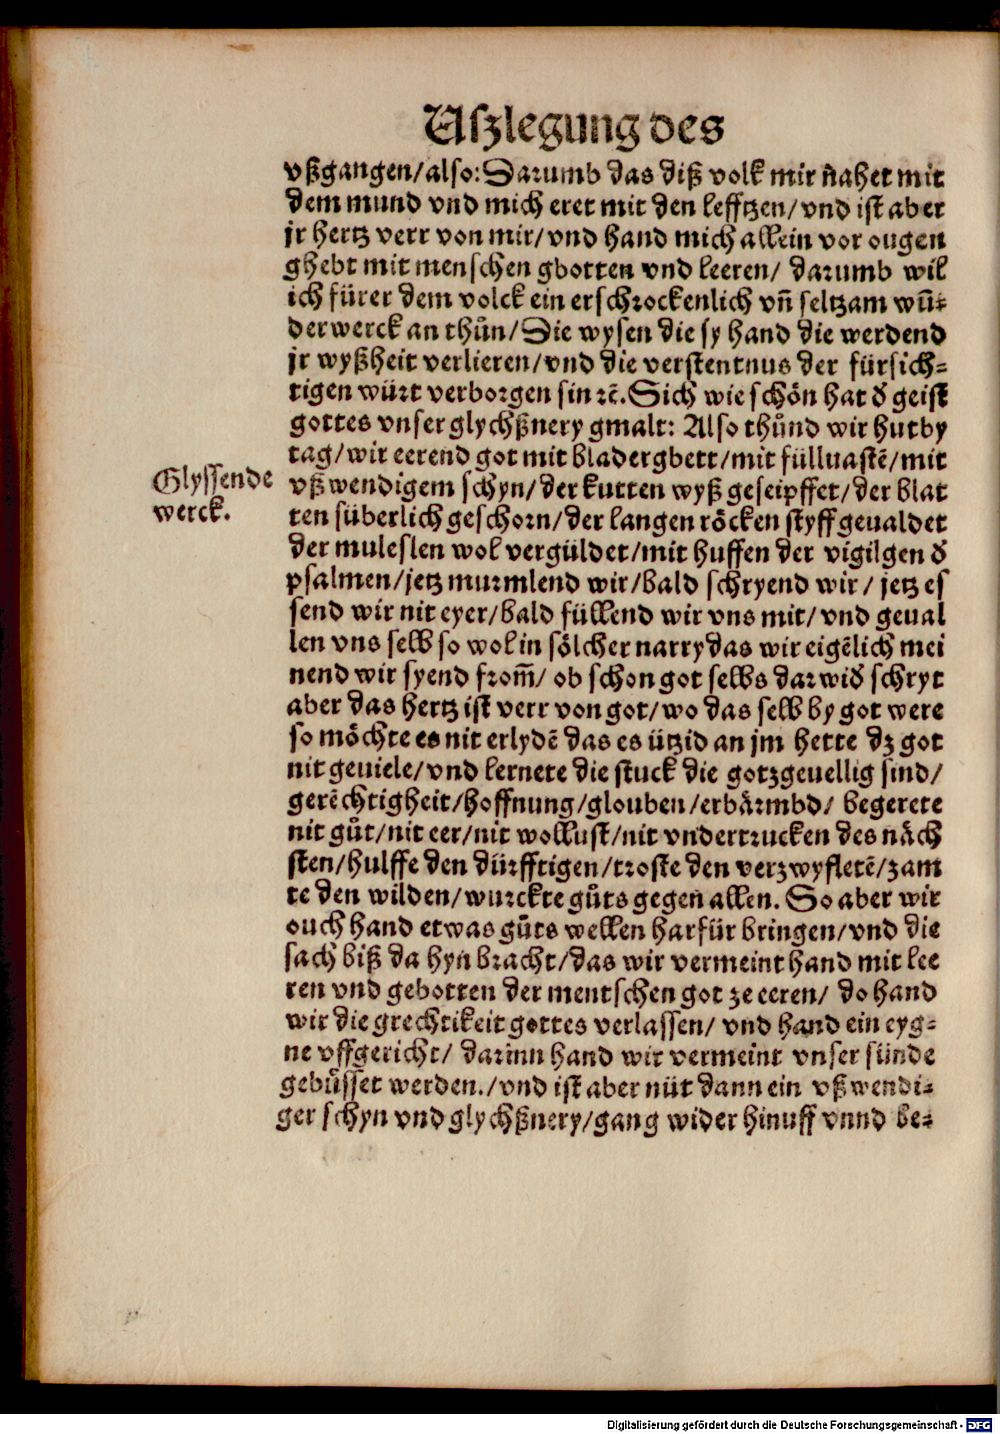 Uſzlegung des
vßgangen/also: Darumb das diß volk mir nahet mit
dem mund vnd mich eret mit den lefftzen/vnd ist aber
jr hertz verr von mir/vnd hand mich allein vor ougen
ghebt mit menschen gbotten vnd leeren/ darumb wil
ich fürer dem volck ein erschrockenlich vñ seltzam wū⸗
derwerck an thůn/Die wysen die sy hand die werdend
jr wyßheit verlieren/vnd die verstentnus der fürsich⸗
tigen würt verborgen sin ꝛē. Sich wie schön hat d̕ geist
gottes vnser glychßnery gmalt: Also thůnd wir hutby
tag/wir eerend got mit bladergbett/mit fülluastē/mit
Glyssende
werck.
vßwendigem schyn/der kutten wyß geseipffet/der blat
ten süberlich geschorn/der langen röcken styff geualdet
der muleslen wol vergüldet/mit huffen der vigilgen d̕
psalmen/jetz murmlend wir/bald schryend wir/ jetz es
send wir nit eyer/bald füllend wir vns mit/ vnd geual
len vns selb so wol in sölcher narry das wir eigēlich mei
nend wir syend from̄/ ob schon got selbs darwid̕ schryt
aber das hertz ist verr von got/wo das selb by got were
so möchte es nit erlydē das es ützid an jm hette dz got
nit geuiele/vnd lernete die stuck die gotzgeuellig sind/
gerēchtigheit/hoffnung/glouben/erbärmbd/ begerete
nit gůt/nit eer/nit wollust/nit vndertrucken des näch
sten/hulffe den dürfftigen/troste den verzwyfletē/zam
te den wilden/wurckte gůts gegen allen. So aber wir
ouch hand etwas gůts wellen harfür bringen/vnd die
sach biß da hyn bracht/das wir vermeint hand mit lee
ren vnd gebotten der mentschen got ze eeren/ do hand
wir die grechtikeit gottes verlassen/ vnd hand ein eyg⸗
ne vffgericht/ darinn hand wir vermeint vnser sünde
gebůsset werden./vnd ist aber nüt dann ein vßwendi⸗
ger schyn vnd glychßnery/gang wider hinuff vnnd be⸗
Digitalisierung gefördert durch die Deutsche Forschungsgemeinschaft - DFG